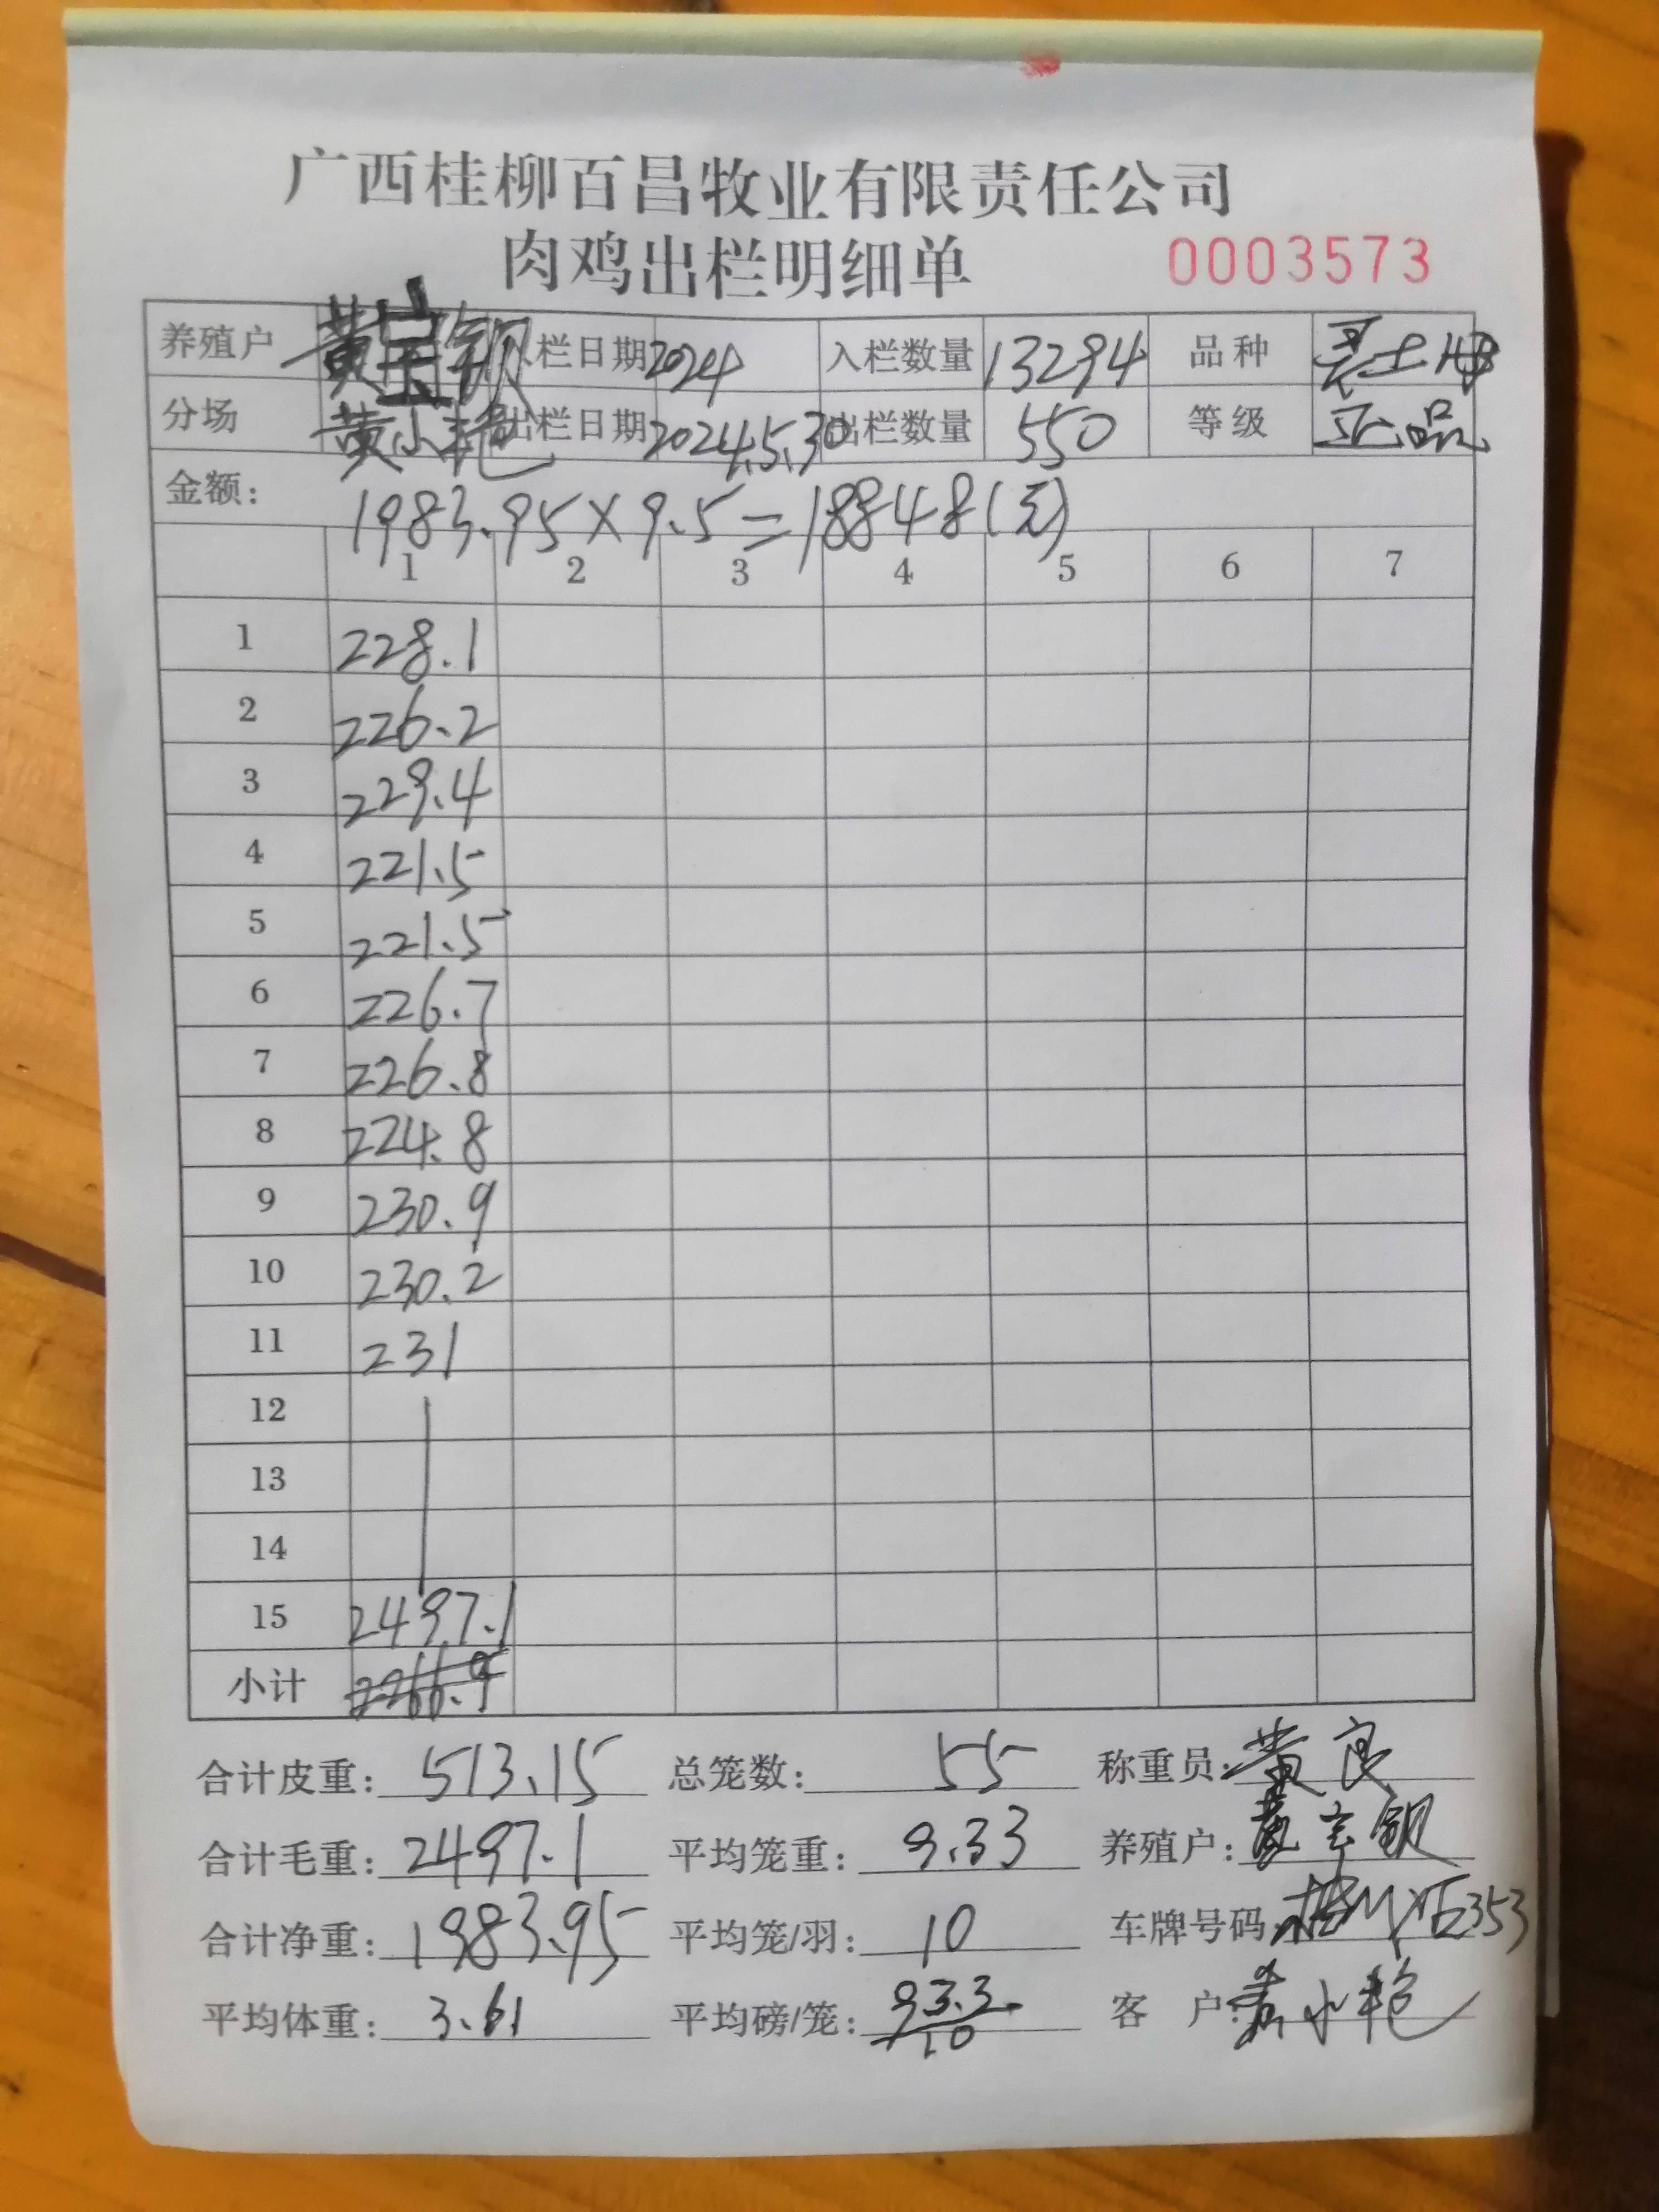 广西桂柳百昌牧业有限责任公司
肉鸡出栏明细单 0003573
养殖户 黄宝钡 栏日期 2024 入栏数量 13294 品种 土
分场 黄小艳 出栏日期 2024.5.30 出栏数量 550 等级 正品
金额: 1983.95×9.5=18848(元)
1 2 3 4 5 6 7
1 228.1
2 226.2
3 229.4
4 221.5
5 221.5
6 226.7
7 226.8
8 224.8
9 230.9
10 230.2
11 231
12
13
14
15 2497.1
小计 2266.9
合计皮重: 513.15 总笼数: 55 称重员: 黄良
合计毛重: 2497.1 平均笼重: 9.33 养殖户: 黄宝钡
合计净重: 1983.95 平均笼/羽: 10 车牌号码: 353
平均体重: 3.61 平均磅/笼: 93.3 10 客 户: 黄小艳